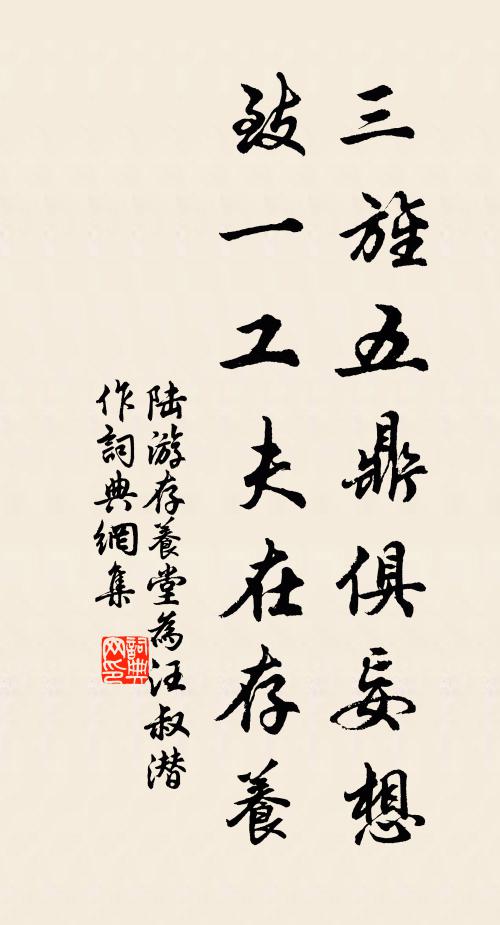 三旌五鼎俱妄想
致一工夫在存養
陸游存養堂為汪叔潛
作詞典網集
詞典網印